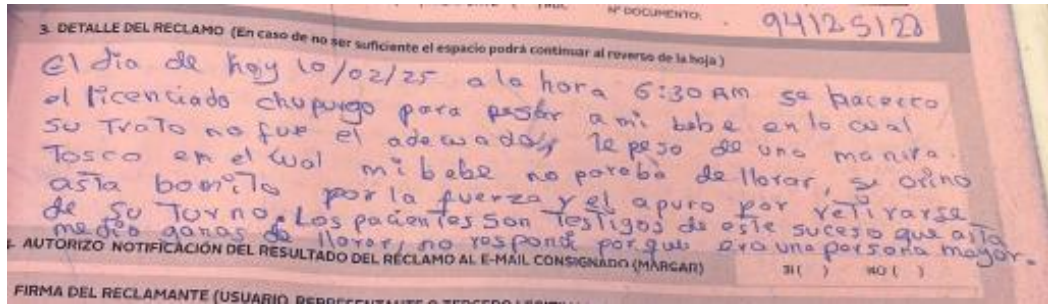 Nº DOCUMENTO: 94125128
3. DETALLE DEL RECLAMO (En caso de no ser suficiente el espacio podrá continuar al reverso de la hoja)
El dia de hoy 10/02/25 a la hora 6:30 AM se hacerco
el licenciado chupurgo para pesar a mi bebe en lo cual
su Trato no fue el adecuado, le peso de una manira
Tosco em el cual mi bebe no paraba de llorar, se orino
asta bomito por la fuerza y el apuro por retirarse
de su Turno. Los pacientes son Testigos de este suceso que asta
medio ganas de llorar, no respondi porque era una persona mayor.
AUTORIZO NOTIFICACIÓN DEL RESULTADO DEL RECLAMO AL E-MAIL CONSIGNADO (MARCAR) SI ( ) NO ( )
FIRMA DEL RECLAMANTE (USUARIO, REPRESENTANTE O TERCERO